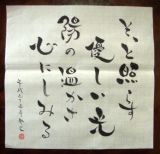 そっと照らす
優しい光
陽の温かさ
心にしみる